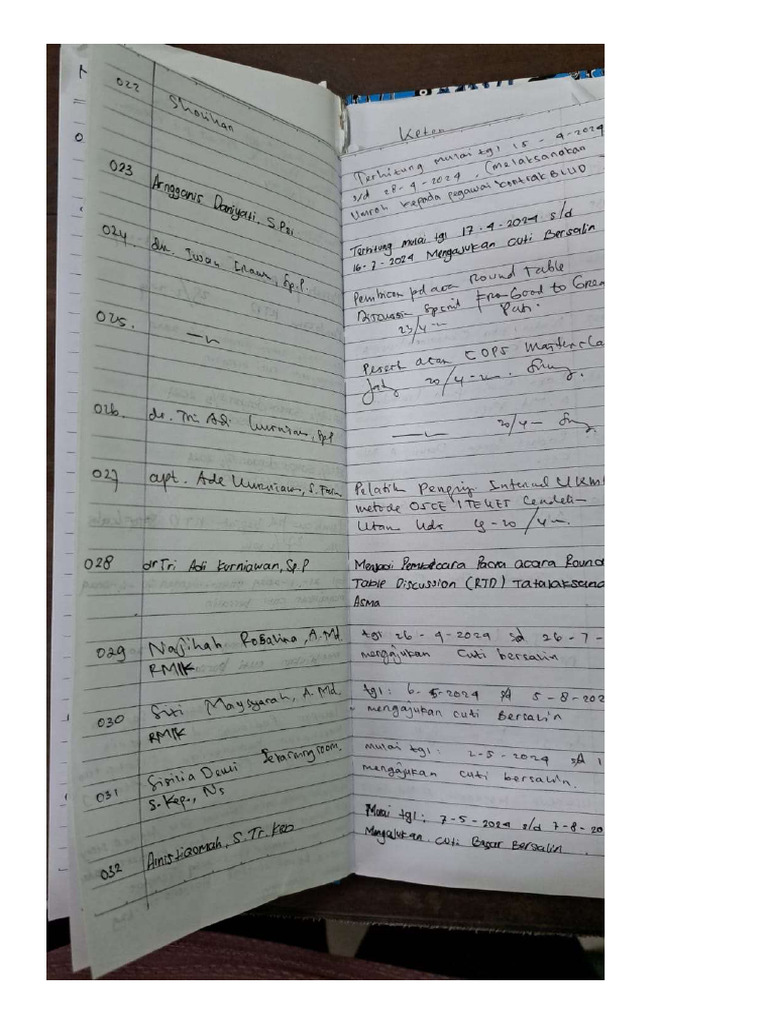 022 Sholihan
Keter
Terhitung mulai tgl 15 - 4 - 2024
s/d 28 - 4 - 2024 . (melaksanakan
Umroh kepada pegawai kontrak BLUD
023 Arngganis Daniyati, S.Psi
Terhitung mulai tgl 17 - 4 - 2024 s/d
16 - 7 - 2024 Mengajukan Cuti Bersalin
024 dr. Iwan , Sp.P.
Pembicara pd acara Round Table
From Good to Great
23/4
025.
Peserta
20/4
026. dr. Tri Adi Kurniawan, SpP
20/4
027 apt. Ade Kurniawan, S. Farm
Pelatih Internal UKM
metode OSCE
19-20/4
028 dr Tri Adi Kurniawan, Sp.P
Menjadi Pembicara Pada acara Round
Table Discussion (RTD) Tatalaksana
Asma
029 Najihah Rosalina, A.Md.
RMIK
tgl 26 - 4 - 2024 sd 26 - 7 -
mengajukan Cuti bersalin
030 Siti Maysyarah, A. Md.
RMIK
tgl : 6 - 5 - 2024 sd 5 - 8 - 202
mengajukan cuti Bersalin
031 Sisilia Dewi
S. Kep., Ns
mulai tgl : 2 - 5 - 2024 sd 1
mengajukan cuti bersalin.
032 Amistiqomah, S.Tr.Keb
Mulai tgl : 7 - 5 - 2024 s/d 7 - 8 - 20
Mengajukan Cuti Besar Bersalin